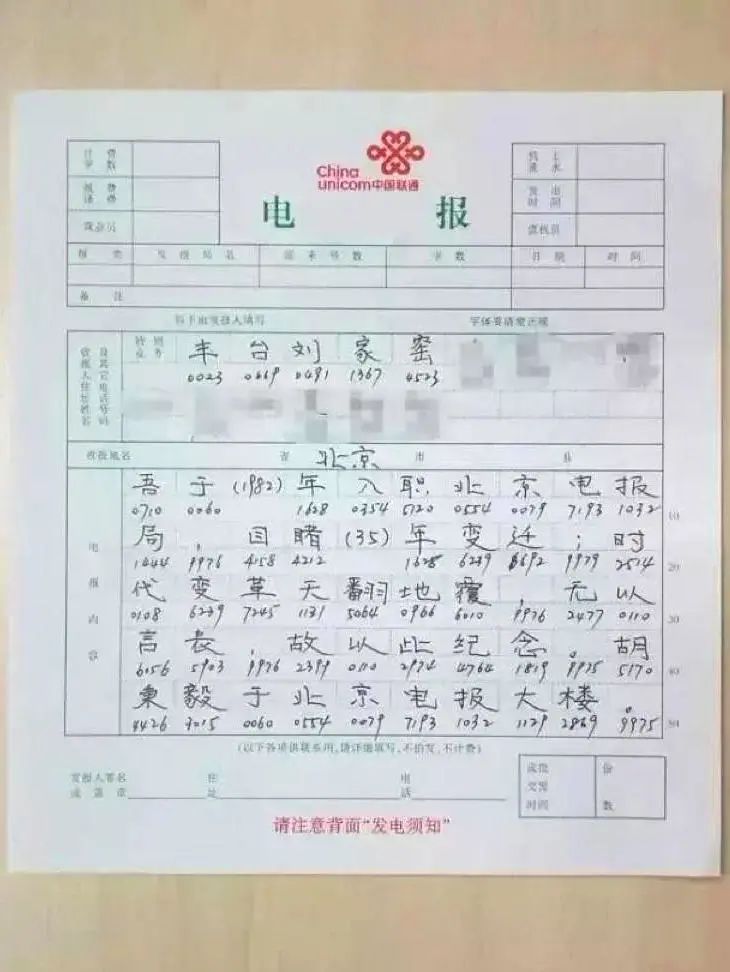 China
unicom中国联通
电 报
计费字数
线上流水
报费译费
发出时间
营业员
查核员
报类 发报局名 原来号数 字数 日期 时间
备注
以下由发报人填写 字体要清楚正楷
收报人住址姓名 及其它电话号码
特别业务 丰 台 刘 家 窑
0023 0669 0491 1367 4523
收报地名 省 北京 市 县
电报内容
吾 于 (1982) 年 入 职 北 京 电 报
0710 0060 1628 0354 5120 0554 0079 7193 1032 (10)
局 , 目 睹 (35) 年 变 迁 ; 时
1444 9976 4158 4212 1628 6239 6692 9979 2514 20
代 变 革 天 翻 地 覆 , 无 以
0108 6239 7245 1131 5064 0966 6010 9976 2477 0110 30
言 表 , 故 以 此 纪 念 。 胡
6056 5903 9976 2399 0110 2974 4764 1819 9975 5170 40
秉 毅 于 北 京 电 报 大 楼 。
4426 3015 0060 0554 0079 7193 1032 1129 2869 9975 50
(以下各项供联系用,请详细填写,不拍发,不计费)
发报人签名或盖章 住址 电话
成投交男时间 份数
请注意背面“发电须知”